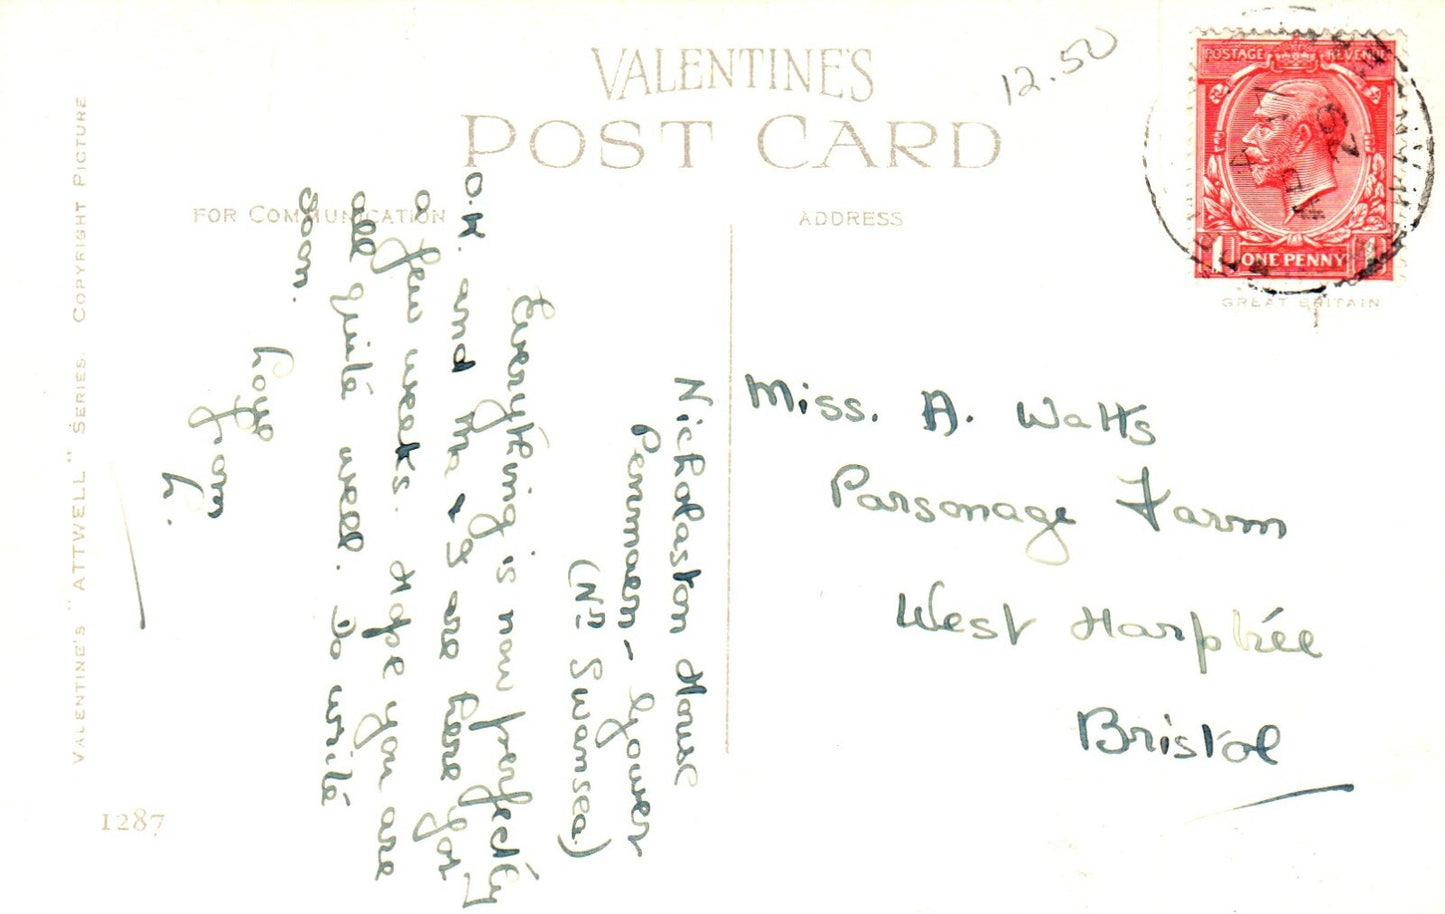 VALENTINE'S
POST CARD
12.50
FOR COMMUNICATION
ADDRESS
POSTAGE REVENUE
1 ONE PENNY 1
GREAT BRITAIN
AP
29
Nicholaston House
Penmaen - Gower
(Nr Swansea)
Everything is now perfectly
O.K. and Me & g are here for
a few weeks. Hope you are
all quite well. Do write
soon.
Love
from
Miss. A. Watts
Parsonage Farm
West Harptree
Bristol
VALENTINE'S "ATTWELL" SERIES. COPYRIGHT PICTURE
1287